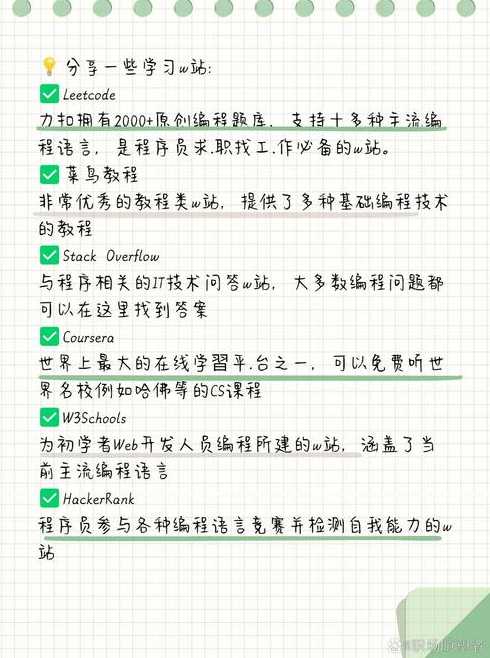 💡 分享一些学习w站:
✅ Leetcode
力扣拥有2000+原创编程题库，支持十多种主流编
程语言，是程序员求.职找工.作必备的w站。
✅ 菜鸟教程
非常优秀的教程类w站，提供了多种基础编程技术
的教程
✅ Stack Overflow
与程序相关的IT技术问答w站，大多数编程问题都
可以在这里找到答案
✅ Coursera
世界上最大的在线学習平.台之一，可以免费听世
界名校例如哈佛等的CS课程
✅ W3Schools
为初学者Web开发人员编程所建的w站，涵盖了当
前主流编程语言
✅ HackerRank
程序员参与各种编程语言竞赛并检测自我能力的w
站